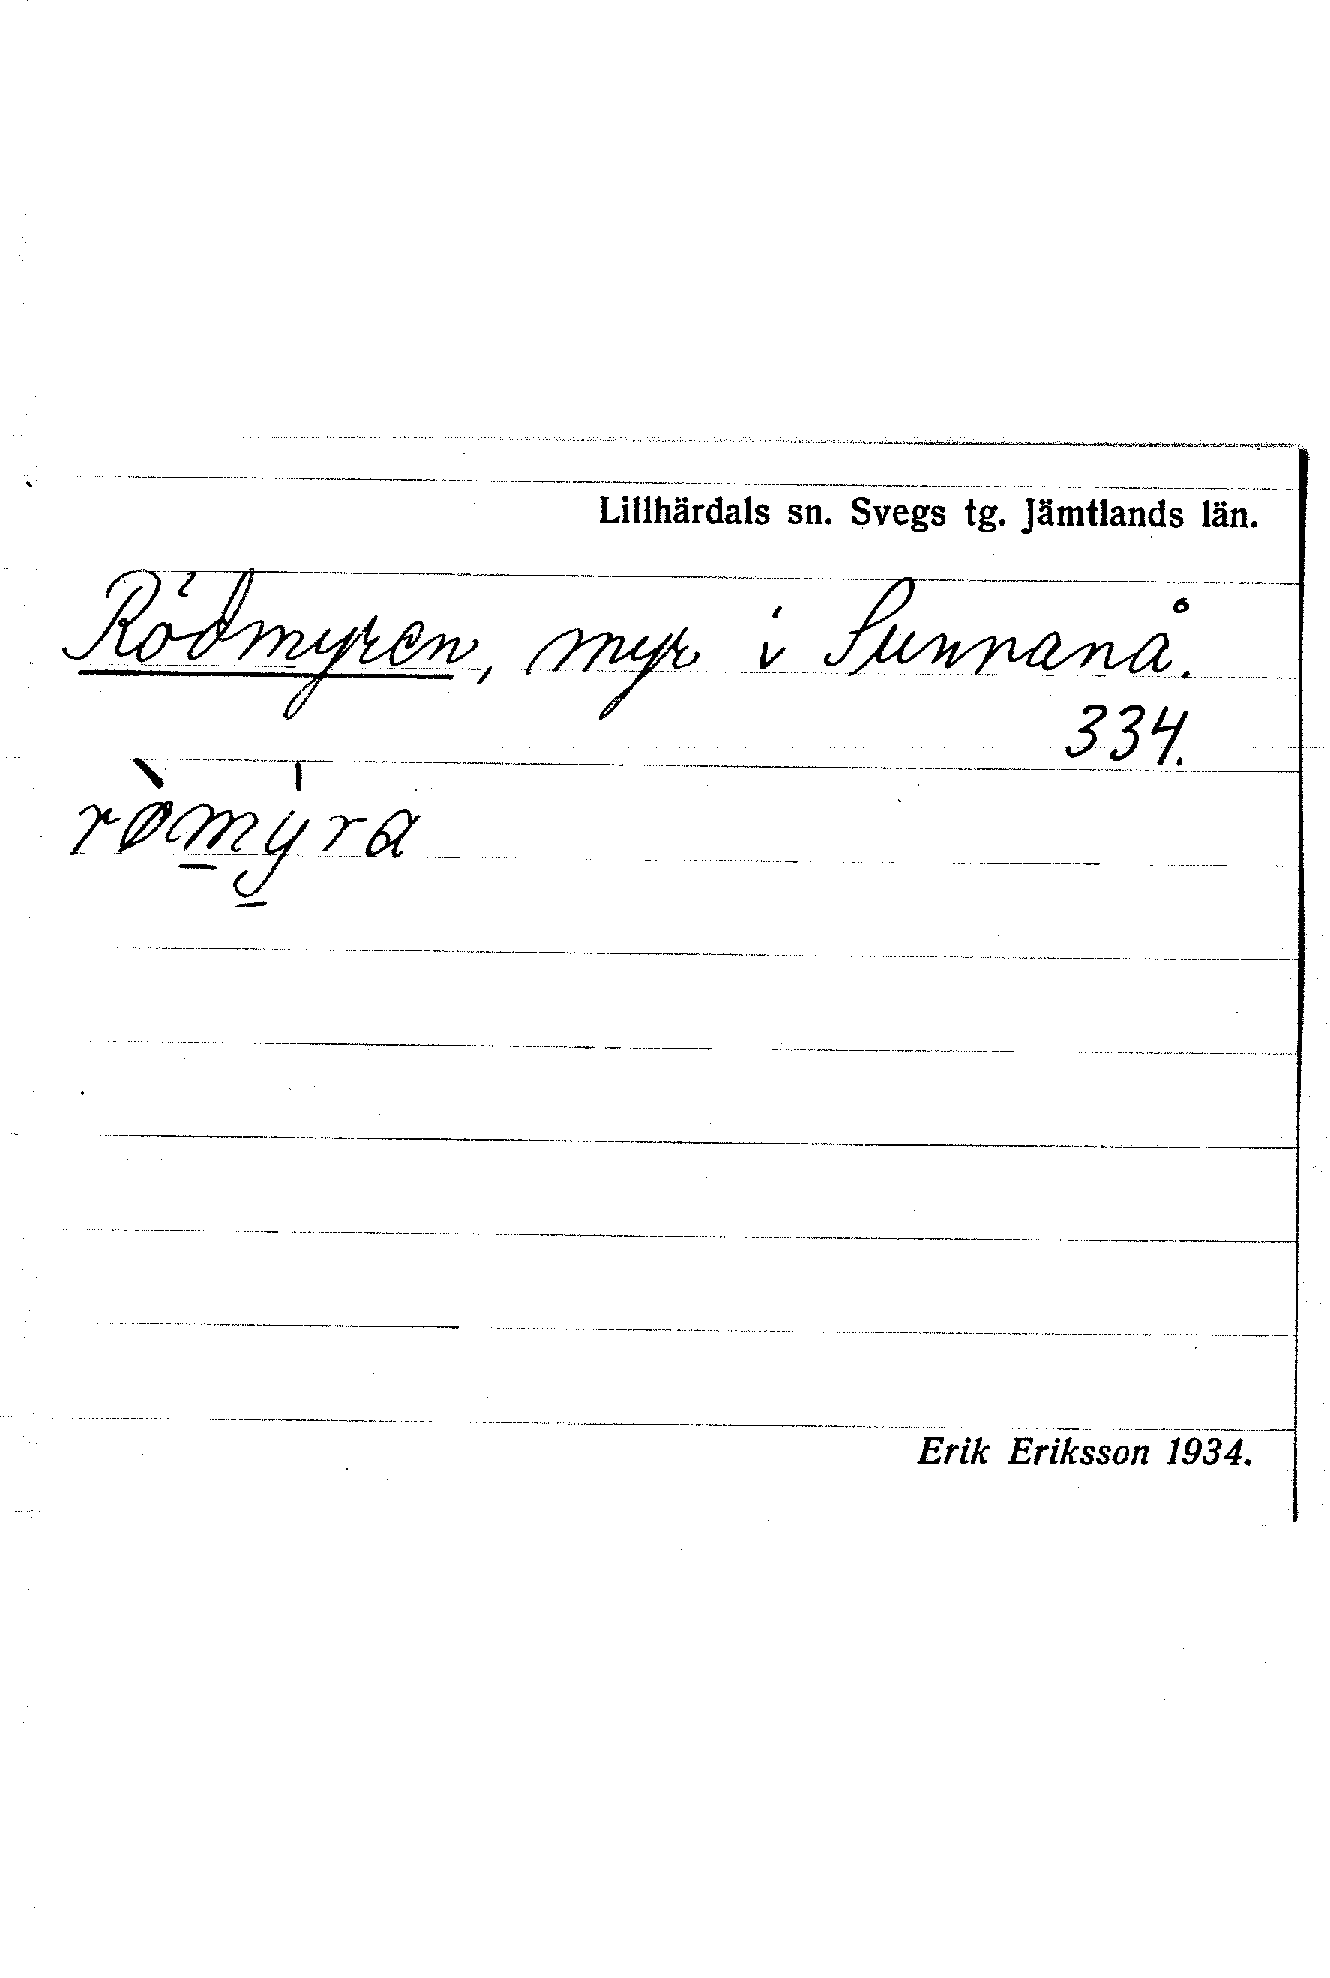 Lillhärdals sn. Svegs tg. Jämtlands län.
Rödmyren, myr i Sunnanå.
334.
rø̀my̍ra
Erik Eriksson 1934.